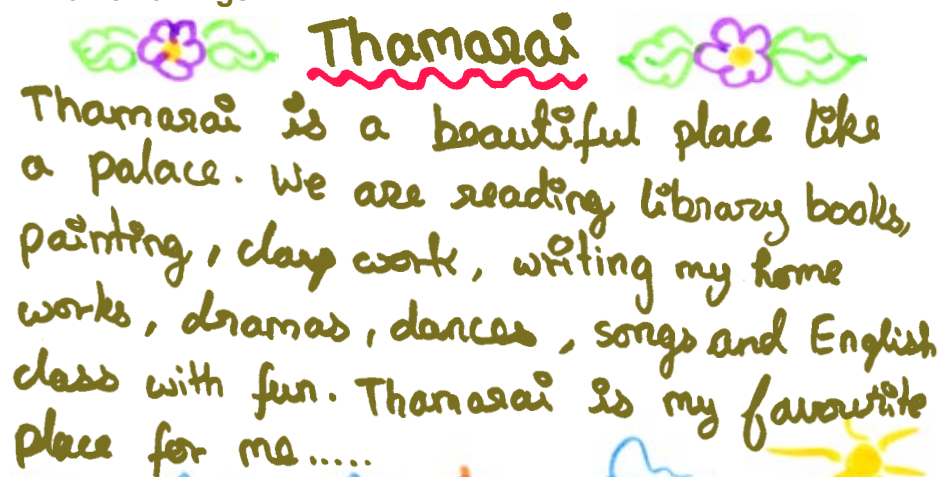 Thamarai
Thamarai is a beautiful place like
a palace. We are reading library books,
painting, clay work, writing my home
works, dramas, dances, songs and English
class with fun. Thamarai is my favourite
place for me.....